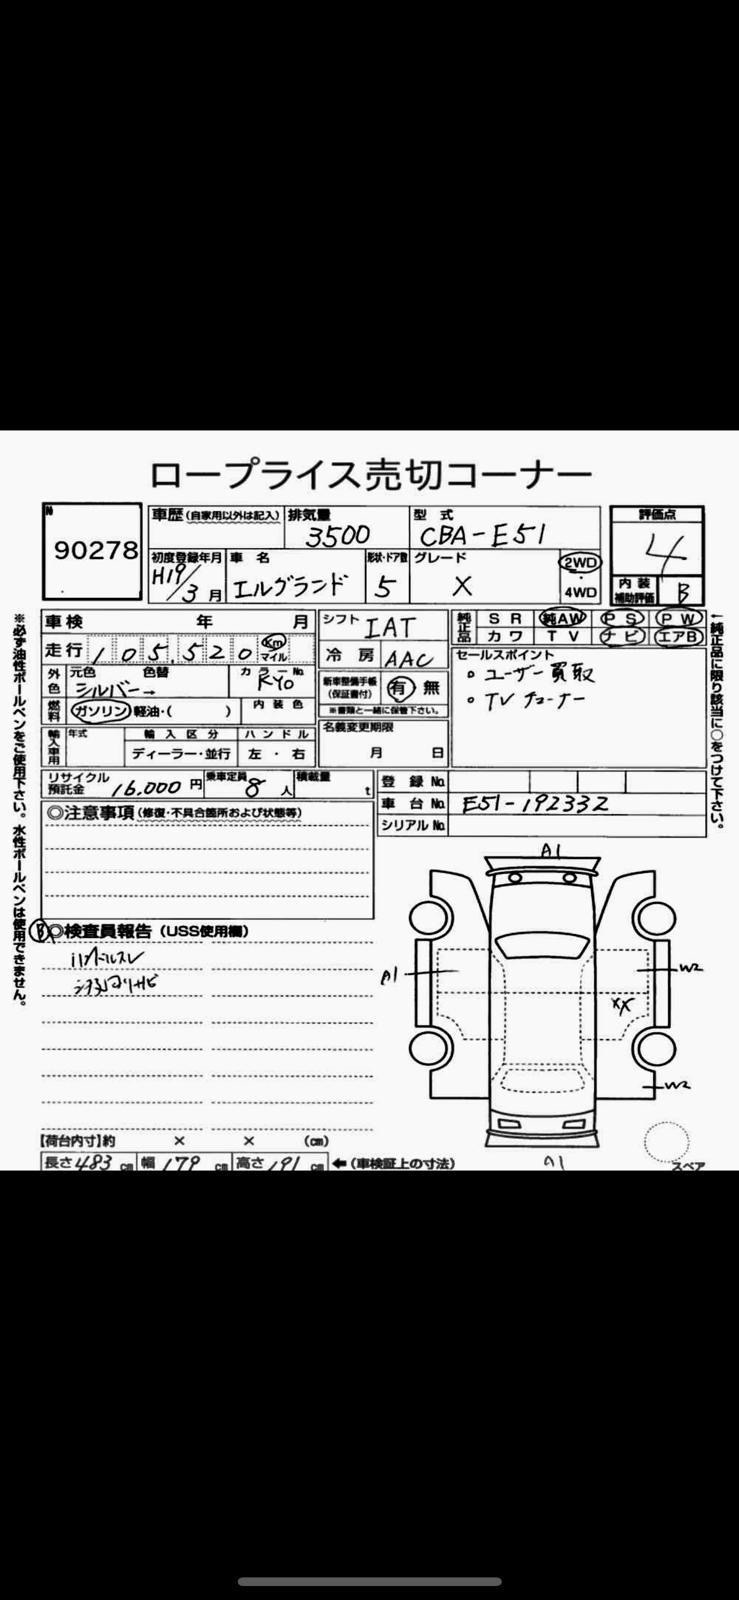 ロープライス売切コーナー
№
90278
車歴(自家用以外は記入)
排気量
3500
型式
CBA-E51
評価点
4
初度登録年月
H19/3月
車名
エルグランド
形状・ドア数
5
グレード
X
2WD
・
4WD
内装
補助評価
B
車検 年 月
シフト
IAT
純正品
SR 純AW PS PW
カワ TV ナビ エアB
走行
105,520
Km
マイル
冷房
AAC
セールスポイント
。ユーザー買取
。TVチューナー
外色
元色 色替
シルバー→
カラーNo.
KY0
新車整備手帳
(保証書付)
有 無
※書類と一緒に保管下さい。
燃料
ガソリン・軽油・( )
内装色
輸入車用
年式
輸入区分
ディーラー・並行
ハンドル
左・右
名義変更期限
月 日
リサイクル
預託金
16,000円
乗車定員
8人
積載量
t
登録No.
車台No.
E51-192332
シリアルNo.
◎注意事項(修復・不具合箇所および状態等)
B
◎検査員報告(USS使用欄)
A1
A1
W2
XX
W2
A1
スペア
【荷台内寸】約 × × (cm)
長さ483cm 幅179cm 高さ191cm ←(車検証上の寸法)
※必ず油性ボールペンをご使用下さい。水性ボールペンは使用できません。
←純正品に限り該当に○をつけて下さい。